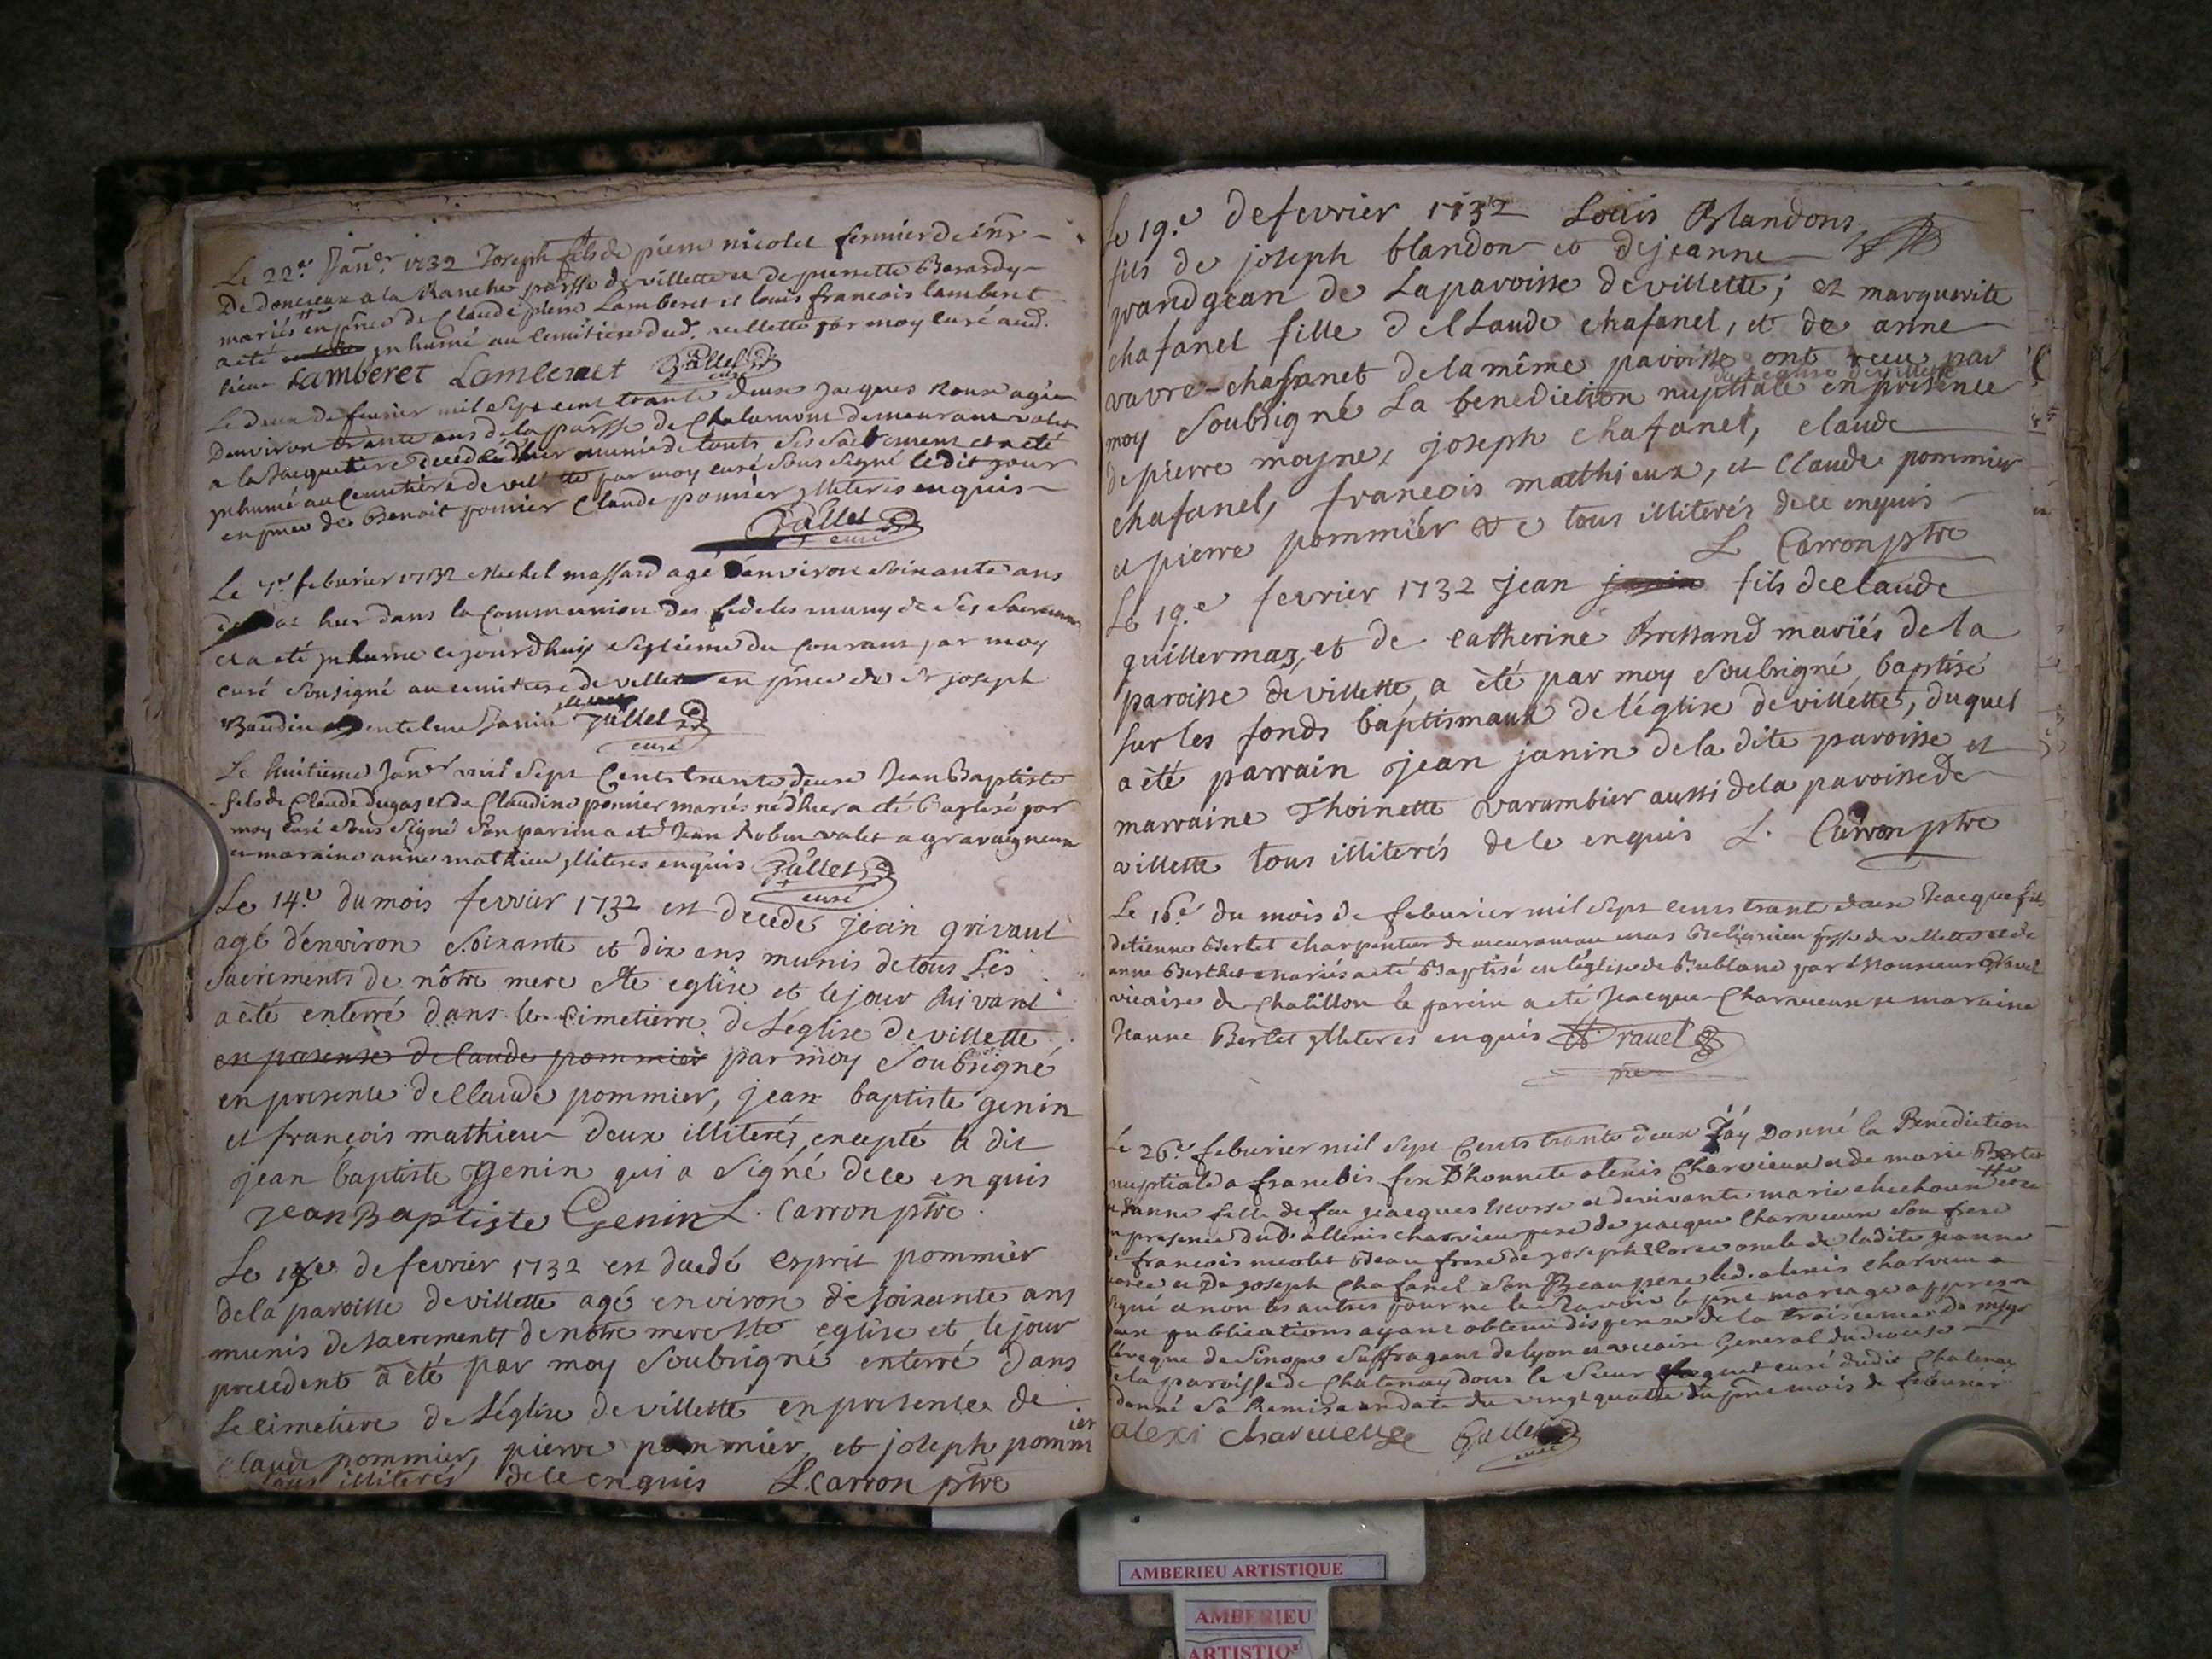 Le 22.e Janer 1732 Joseph fils de pierre nicolet fermier de mr
De donereux a la Ranche parsse de villette et de pierrette Berardy
mariés en pnce de Claude pierre Lamberet et louis francois lamberet
a eté inhumé au Cemitiere dud. villette par moy curé aud.
lieu Lamberet Lamberet Gallet curé
Le deux de fevrier mil sept cent trante deux Jacques Roux agé
Denviron trante ans de la parsse de Chalamont demeurant valet
a la Jacquetiere decedé d'hier munie de touts ses sacrement et a eté
inhumé au Cemetiere de villette par moy curé sous signé ledit jour
en pnce de Benoit pomier Claude pomier illiteres enquis
Gallet curé
Le 7.e feburier 1732 Michel massard agé d'environ soixante ans
hier dans la Communion des fideles muny de ses sacremens
et a eté inhumé ce jourdhuy septieme du Courant par moy
curé sousigné au cemitiere de villette en pnce de Sr joseph
Baudin et entelme Janin Gallet
curé
Le huitieme Janer mil sept Cents trante deux Jean Baptiste
fils de Claude dugas et de Claudine pomier mariés né d'hier a eté Baptisé par
moy Curé sous signé son parin a eté Jean Robin valet a gravagneux
et maraine anne mathieu illiteres enquis Gallet
curé
Le 14.e du mois fevrier 1732 est decedé jean grivaul
agé d'environ soixante et dix ans munis de tous ses
sacrements de nôtre mere ste eglise et le jour suivant
a èté enterré dans le cimetierre de l'église de villette
en presense de laude pommier par moy soubsigné
en presense de Claude pommier, jean baptiste genin
et françois mathieu deux illiterés, encepté le dit
jean baptiste genin qui a signé de ce enquis
Jean Baptiste Genin L. Carron ptre.
Le de fevrier 1732 est decedé esprit pommier
de la paroisse de villette agé environ de soixante ans
munis de sacrements de notre mere ste eglise et le jour
precedent a èté par moy soubsigné enterré dans
le cimetiere de l'église de villette en presense de
Claude pommier, pierre pommier, et joseph pommier
tous illiterés de ce enquis L. Carron ptre
Le 19.e de fevrier 1732 Louis Blandons
fils de joseph blandon et de jeanne
grandgean de la paroisse de villette; et marguerite
chafanel fille de Claude chafanel, et de anne
vavre-chafanet de la même paroisse ont receu par
moy soubsigné la benediction nuptiale en presence
de pierre moyne, joseph chafanel, claude
chafanel, françois matthieux, et Claude pommier
et pierre pommiér &c tous illiterés de ce enquis
L Carron ptre
Le 19.e fevrier 1732 jean janin fils de Claude
guillermaz, et de catherine Bressand mariés de la
paroisse de villette, a èté par moy soubsigné baptisé
sur les fonds baptismaux de l'église de villétte, duquel
a èté parrain jean janin de la dite paroisse et
marraine Thoinette varambier aussi de la paroisse de
villette tous illiterés de ce enquis L. Carron ptre
Le 16.e du mois de feburier mil sept cents trante deux Jacque fils
detienne Bertet charpentier demeurant au mas psse de villette et de
anne Berthet mariés a eté Baptisé en l'église de Bublane par Monsieur Gravel
vicaire de Chatillon le parein a eté Jacque Charvieux et maraine
Jeanne Bertet illiteres enquis Gravel
pre
Le 26.e feburier mil sept Cents trante deux J'ay Donné la Benediction
nuptiale a francois fix Dhonnete alexis Charvieux et de marie Bertet
et Janne fille de feu jeacques et de vivante marie
en presence dud. allexis charvieu pere de jeacque Charvieux son frere
de francois nicolet beau frere de joseph oncle de ladite jeanne
et De joseph Chafanel son Beau pere led. alexis charvieu a
signé et non les autres pour ne le scavoir le pnt mariage appres
deux publications ayant obtenu dispense de la troisieme de msgr
levêque de Sinope suffragant de lyon et vicaire General du diocese
et la paroisse de Chatenay dont le sieur curé dudit Chatenay
donné sa Remise en date du vingt quatre du pnt mois de feburier
alexi charvieux Gallet
curé
AMBERIEU ARTISTIQUE
AMBERIEU
ARTISTIQUE